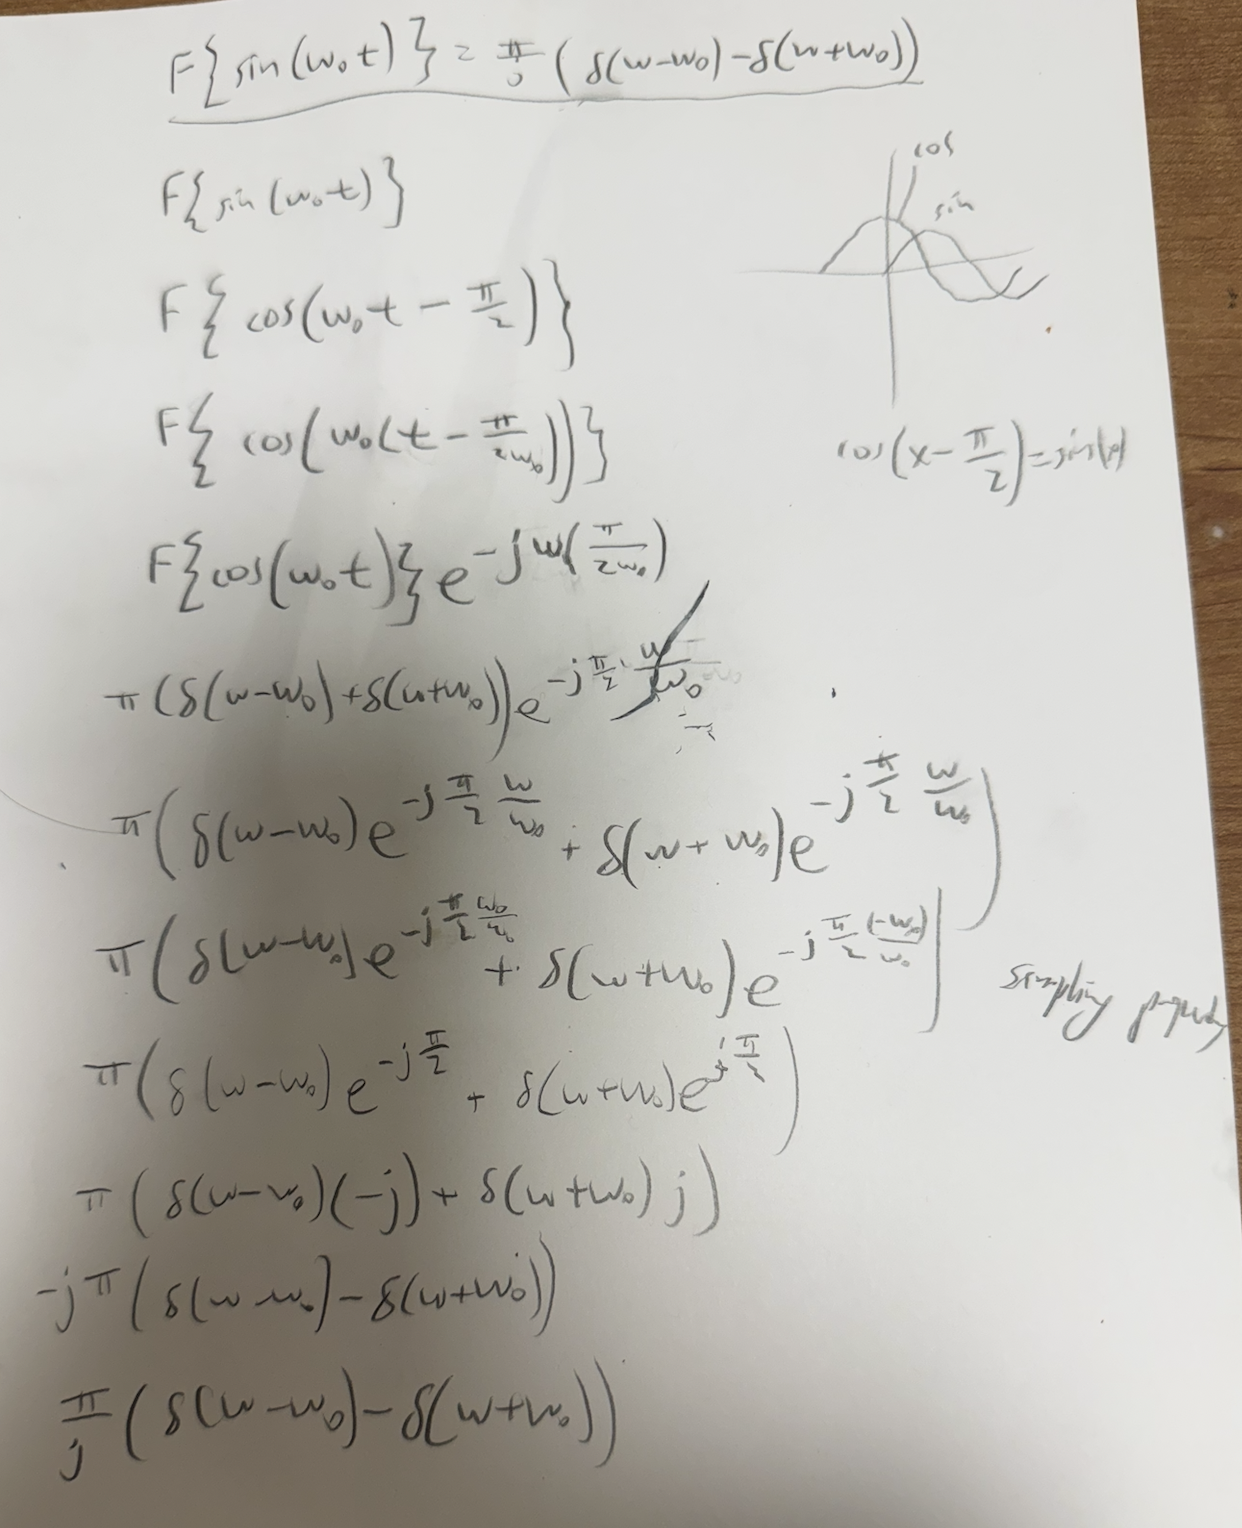 F{sin(w₀t)} = π/j (δ(w-w₀)-δ(w+w₀))
F{sin(w₀t)}
cos
sin
F{cos(w₀t - π/2)}
F{cos(w₀(t - π/2w₀))}
cos(x - π/2) = sin(x)
F{cos(w₀t)} e^(-jw(π/2w₀))
π(δ(w-w₀)+δ(w+w₀)) e^(-j π/2 · w/w₀)
π(δ(w-w₀)e^(-j π/2 w/w₀) + δ(w+w₀)e^(-j π/2 w/w₀))
π(δ(w-w₀)e^(-j π/2 w₀/w₀) + δ(w+w₀)e^(-j π/2 (-w₀)/w₀))
sampling property
π(δ(w-w₀)e^(-j π/2) + δ(w+w₀)e^(j π/2))
π(δ(w-w₀)(-j) + δ(w+w₀)j)
-jπ(δ(w-w₀)-δ(w+w₀))
π/j (δ(w-w₀)-δ(w+w₀))